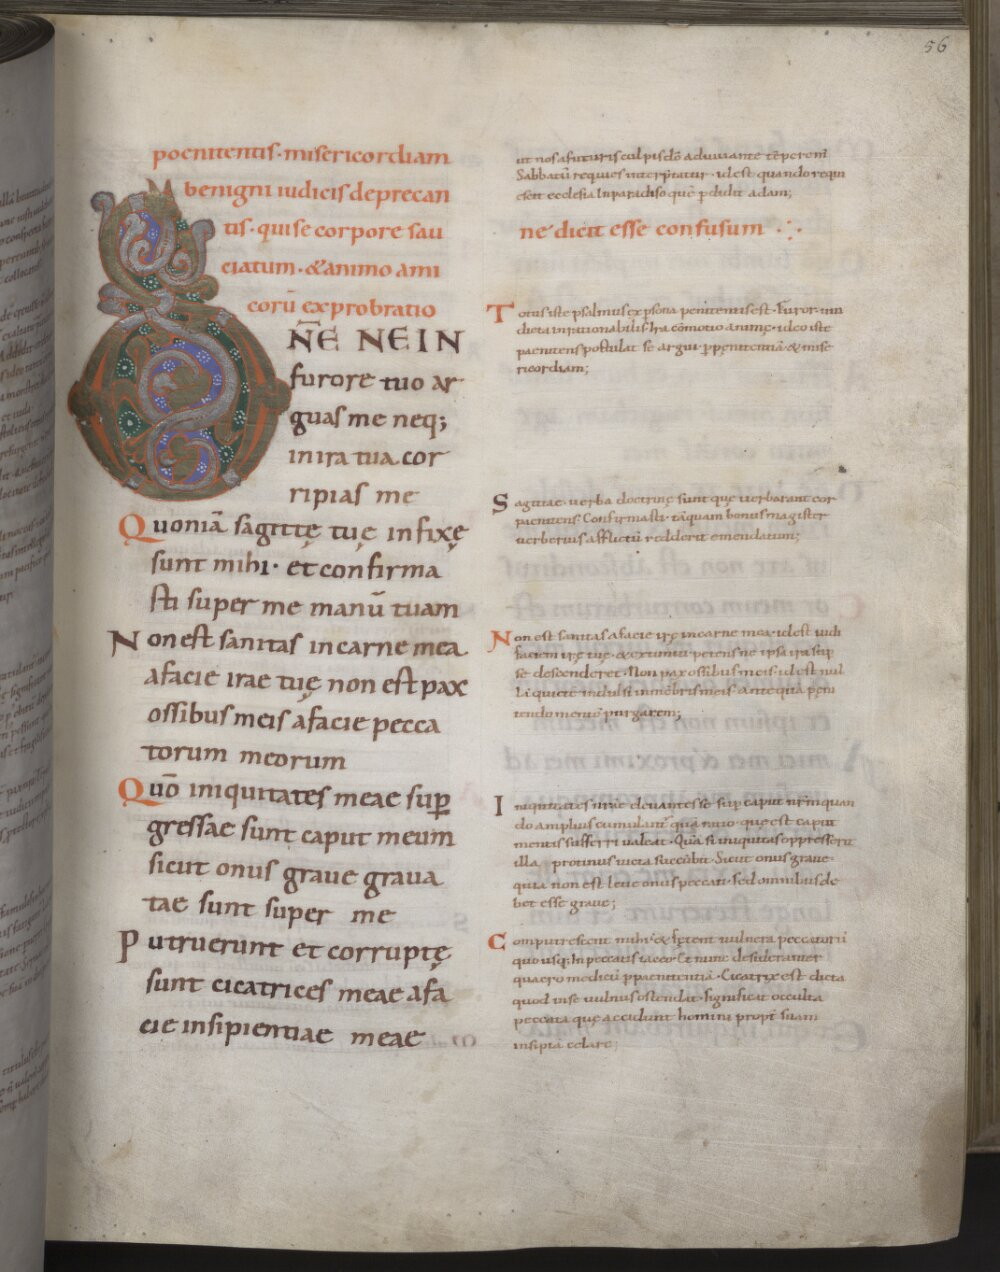 56
poenitentis· misericordiam
benigni iudicis deprecan
tis· qui se corpore sau
ciatum· & animo ami
corū exprobratio
ne dicit esse confusum
N̄E NE IN
furore tuo ar
guas me neq;
in ira tua cor
ripias me
Quoniā sagittę tuę infixę
sunt mihi· et confirma
sti super me manū tuam
Non est sanitas in carne mea
a facie irae tuę non est pax
ossibus meis a facie pecca
torum meorum
Quō iniquitates meae sup̄
gressae sunt caput meum
sicut onus graue graua
tae sunt super me
Putruerunt et corruptę
sunt cicatrices meae a fa
cie insipientiae meae
ut nos a futuris culpis dō adiuuante
Sabbatū requies interp̄tatur· idest quando
in paradiso quę p̄didit adam;
Totus iste psalmus ex psona penitentis est· Furor
dicta inrationabilis commotio animę· ideo iste
paenitens postulat se argui p penitentiā & mise
ricordiam;
Sagittae· uerba doctrinę sunt quę uerberant cor
paenitens· Confirmasti· tāquam bonus magister
uerberius afflictū redderet emendatum;
Non est sanitas a facie irę in carne mea· idest uidi
faciem irę tuę· & extimui petens ne ipsa ira sup
se descenderet· Non pax ossibus meis· idest nul
la quiete indulsi membris meis antequā peni
tendo purgarem;
Iniquitates
do amplius
mentis sufferri ualeat· Quā si iniquitas oppresserit
illa protinus uicta succūbit· Sicut onus graue·
quia non est leue onus peccati· sed omnibus de
bet esse graue;
Computrescunt mihi & fętent uulnera peccatorū
quousq; in peccatis iaceo· Et nunc desideranter
quaero medicū p paenitentiā· Cicatrix est dicta
quod uise uulnus ostendat· significat occulta
peccata quę accidunt homini propt̄ suam
insipiā